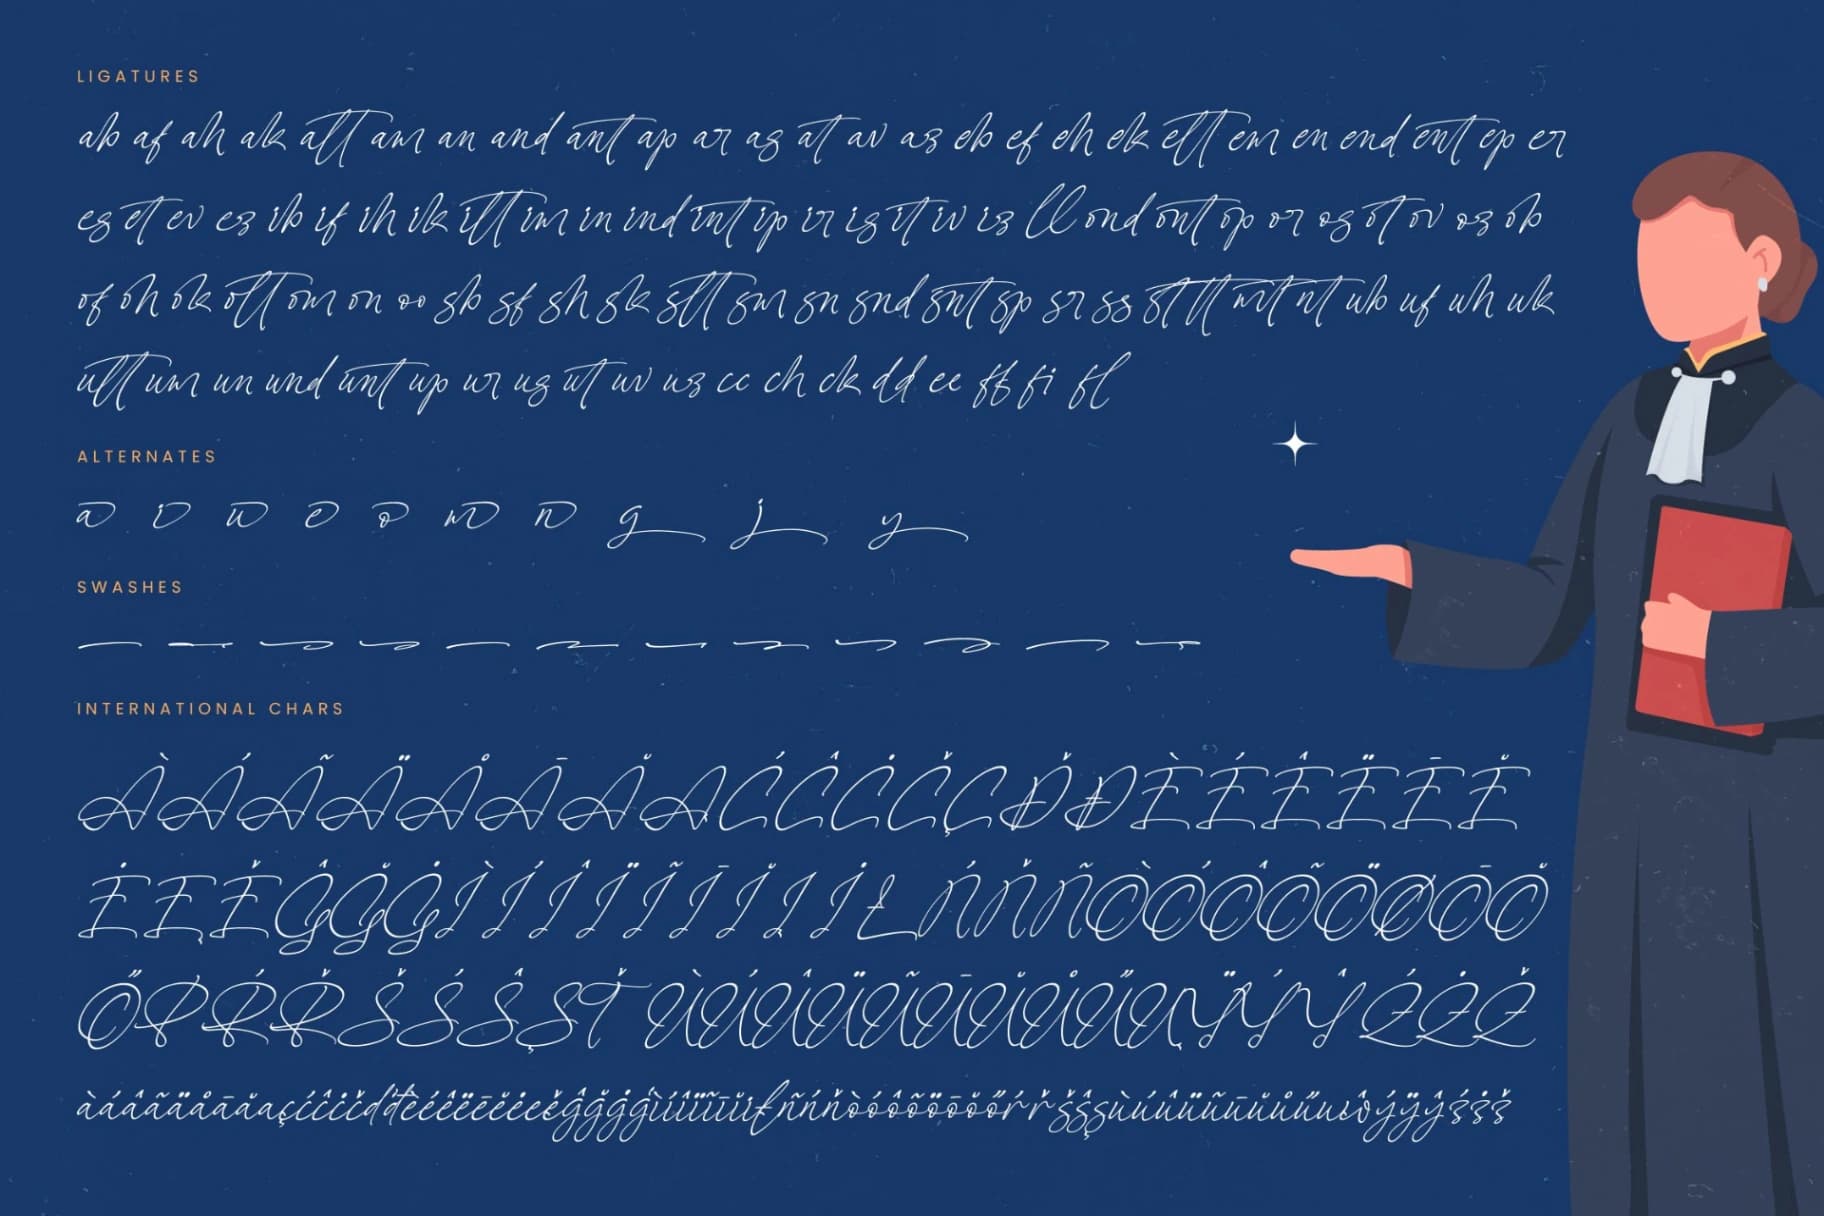 LIGATURES
ab af ah ak att am an and ant ap ar as at av az eb ef eh ek ett em en end ent ep er
es et ev ez ib if ih ik itt im in ind int ip ir is it iv iz ll ond ont op or os ot ov oz ob
of oh ok ott om on oo sb sf sh sk stt sm sn snd snt sp sr ss st tt mt nt ub uf uh uk
utt um un und unt up ur us ut uv uz cc ch ck dd ee ff fi fl
ALTERNATES
a i u e o m n g j y
SWASHES
INTERNATIONAL CHARS
À Á Ã Ä Å Ā Ă Ą Ć Ĉ Ċ Č Ç Ď Đ È É Ê Ë Ē Ĕ
Ė Ę Ě Ĝ Ğ Ġ Ì Í Î Ï Ĩ Ī Ĭ Į İ Ł Ń Ň Ñ Ò Ó Ô Õ Ö Ø Ō Ŏ
Ő P Ŕ Ř Š Ś Ŝ Ş Ť Ù Ú Û Ü Ũ Ū Ŭ Ů Ű Ų Ÿ Ý Ŷ Ź Ż Ž